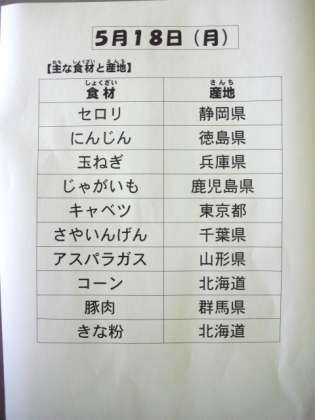 5月18日（月）
【主な食材と産地】
食材 産地
セロリ 静岡県
にんじん 徳島県
玉ねぎ 兵庫県
じゃがいも 鹿児島県
キャベツ 東京都
さやいんげん 千葉県
アスパラガス 山形県
コーン 北海道
豚肉 群馬県
きな粉 北海道